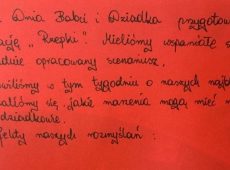 Dnia Babci i Dziadka przygotow
ację "Rzepki". Mieliśmy wspaniałe s
dnie opracowany scenariusz.
wiliśmy w tym tygodniu o naszych najb
ialiśmy się, jakie marzenia mogą mieć n
dziadkowie.
fekty naszych rozmyślań :